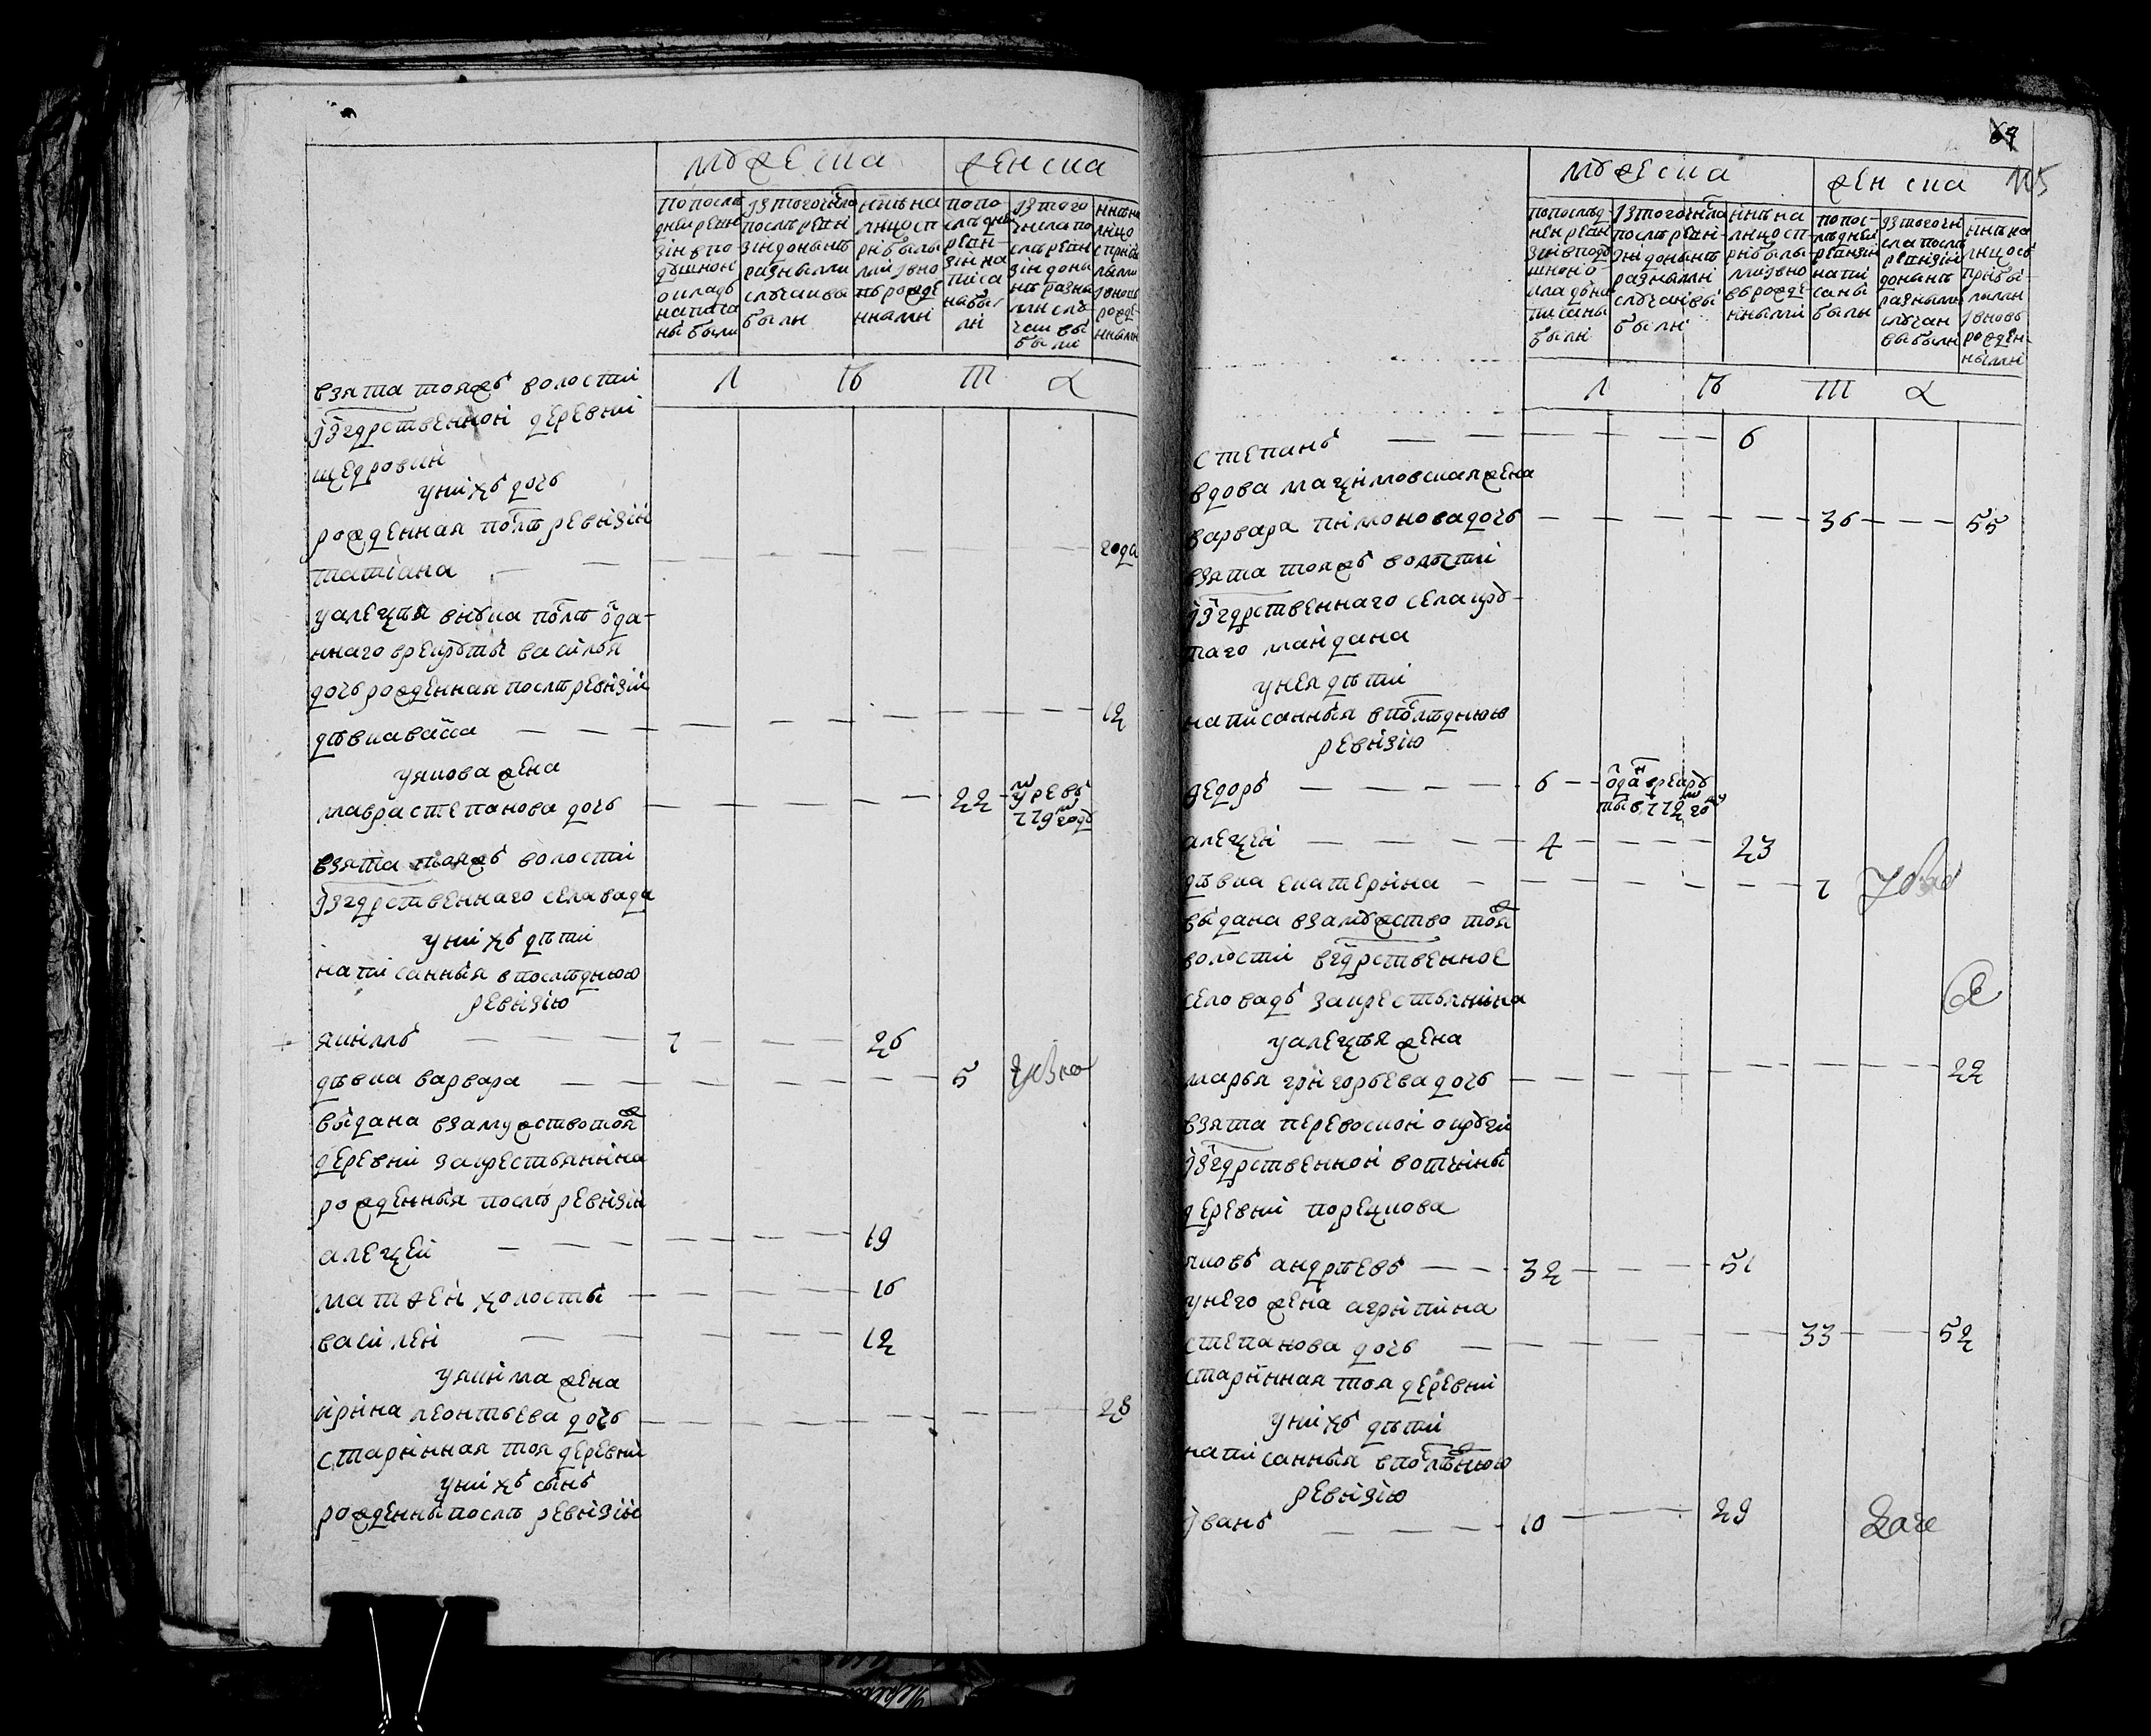 мужеска женска
по послѣ
дней реви
зіи в по
душномъ
окладѣ
написа
ны были
изтого числа
послѣ реви
зіи до нынѣ
разными
случаи вы
были
нынѣ на
лицо съ п
рибылы
ми і вно
вь рожде
нными
по по
слѣдне
реви
зіи на
писа
ны бы
ли
изтого
числа по
слѣ реви
зіи до ны
нѣ разны
ми слу
чаи вы
были
нынѣ на
лицо
с прибы
лыми
і вновь
рожде
нными
л ѣ т а
взята тояжъ волости
изгдрственной деревни
щедровки
у нихъ дочь
рожденная послѣ ревизіи
татіана — — года
у алеѯѣя внука послѣ ѿда-
ннаго в рекруты василья
дочь рожденная послѣ ревизіи
дѣвка васса — 12
у якова жена
мавра степанова дочь — 22 — умре въ
779 году
взята тояжъ волости
изгдрственнаго села вада
у нихъ дѣти
написанныя в послѣднюю
ревизію
якимъ — 7 — 26
дѣвка варвара — 5
выдана взамужство тояж
деревни за крестьянина
рожденныя послѣ ревизіи
алеѯей — 19
матѳей холосты — 16
василей — 12
у якима жена
ирина леонтьева дочь — 28
старинная тоя деревни
у нихъ сынъ
рожденны послѣ ревизіи
115
мужеска женска
по послѣд
ней реви
зіи в поду
шномъ о
кладѣ на
писаны
были
изтого числа
послѣ реви-
зіи до нынѣ
разными
случаи вы
были
нынѣ на
лицо с п-
рибылы
ми і вно
вь рожде-
нными
по пос-
лѣдней
ревизіи
напи
саны
были
изтого чи
сла послѣ
ревизіи
до нынѣ
разными
случаи
выбыли
нынѣ на
лицо съ
прибы-
лыми
і вновь
рожден-
ными
л ѣ т а
степанъ — 6
вдова маѯимовская жена
варвара пимонова дочь — 36 — 55
взята тояжъ волости
изгдрственнаго села кру-
таго майдана
у нея дѣти
написанныя в послѣднюю
ревизію
ѳедоръ — 6 — ѿдан в рекру
ты в 772 году
алеѯей — 4 — 23
дѣвка екатерина — 7
выдана взамужство тояж
волости в гдрственное
село вадъ за крестьянина
у алеѯѣя жена
марья григорьева дочь — 22
взята перевоской округи
изгдрственной вотчины
деревни порецкова
яковъ андрѣевъ — 32 — 51
у него жена агрипина
степанова дочь — 33 — 52
старинная тоя деревни
у нихъ дѣти
написанныя в послѣднюю
ревизію
іванъ — 10 — 29